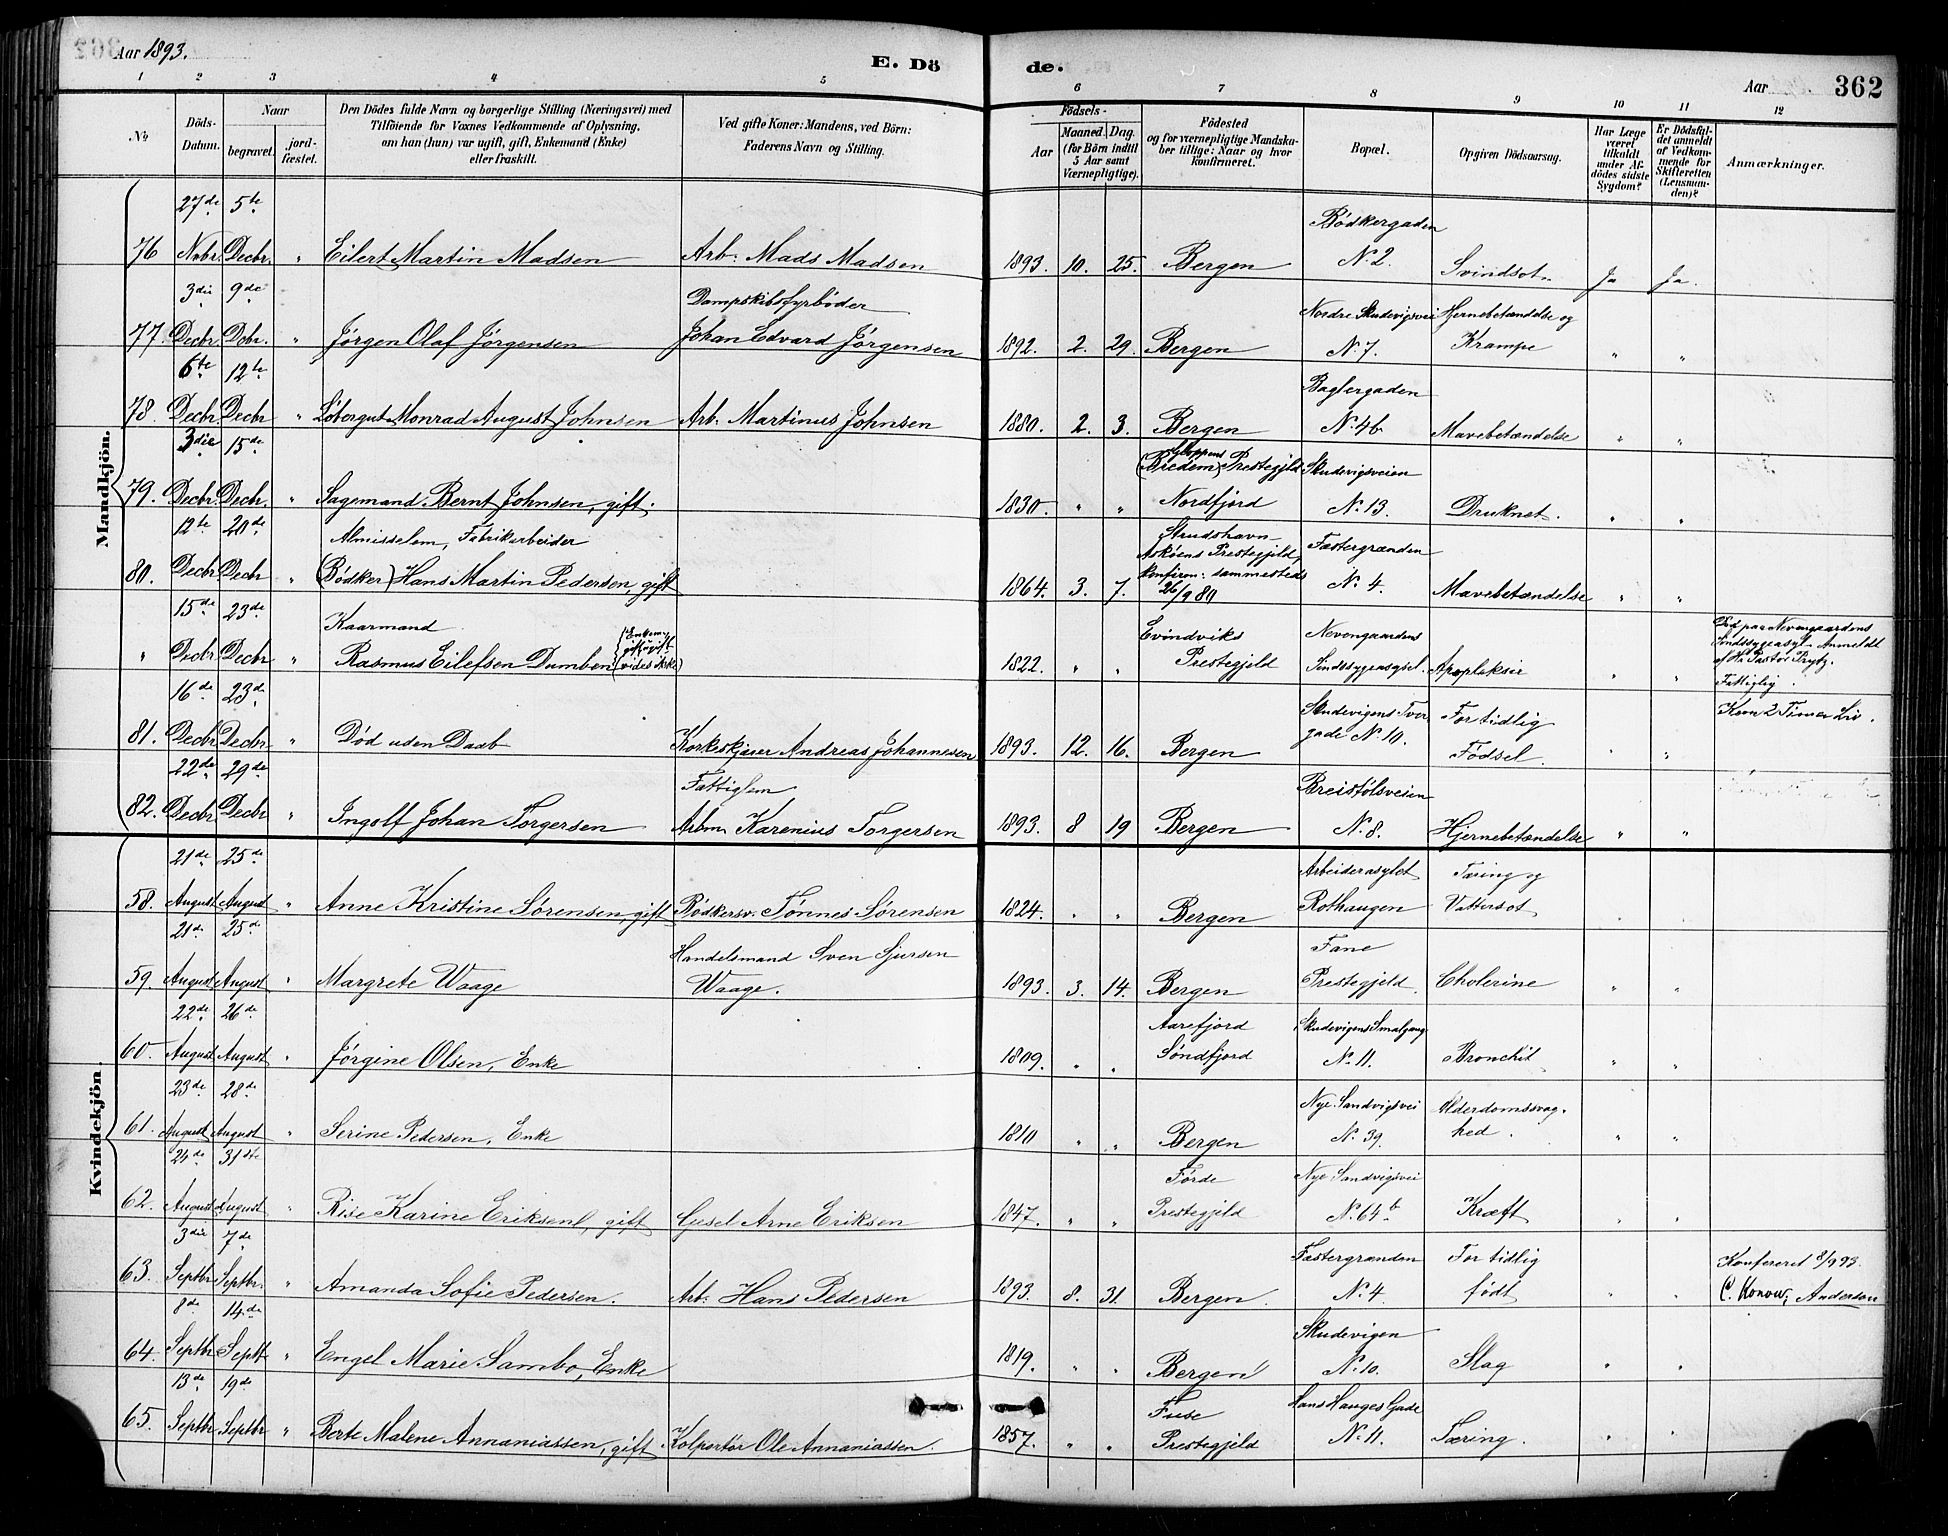 Aar 1893.
E. Dö de.
Aar 362
1 2 3 4 5 6 7 8 9 10 11 12
No.
Döds-Datum.
Naar
begravet.
jord-fæstet.
Den Dödes fulde Navn og borgerlige Stilling (Næringsvei) med
Tilföiende for Voxnes Vedkommende af Oplysning,
om han (hun) var ugift, gift, Enkemand (Enke)
eller fraskilt.
Ved gifte Koner: Mandens, ved Börn:
Faderens Navn og Stilling.
Födsels-
Aar
Maaned. Dag.
(for Börn indtil
5 Aar samt
Værnepligtige).
Födested
og for værnepligtige Mandska-
ber tillige: Naar og hvor
konfirmeret.
Bopæl.
Opgiven Dödsaarsag.
Har Læge
været
tilkaldt
under Af-
dödes sidste
Sygdom?
Er Dödsfal-
det anmeldt
af Vedkom-
mende for
Skifteretten
(Lensman-
den)?
Anmærkninger.
Mandkjön.
27de 5te Bødkergaden
76 Nvbr. Decbr. " Eilert Martin Madsen Arb. Mads Madsen 1893. 10. 25. Bergen No 2. Svindsot Ja Ja.
3die 9de Dampskibsfyrbøder Nordre Skudevigsvei Hjernebetændelse og
77. Decbr. Dcbr. " Jørgen Olaf Jørgensen Johan Edvard Jørgensen 1892. 2. 29. Bergen No 7. Krampe " "
6te 12te Baglergaden
78. Decbr. Decbr " Løbergut Monrad August Johnsen Arb. Martinus Johnsen 1880. 2. 3. Bergen No 4b. Mavebetændelse " "
3die 15de Gloppens
(Bredem) Prestegjeld Skudevigsveien
79. Decbr. Decbr. " Sagemand Bernt Johnsen, gift. 1830. " " Nordfjord No 13. Druknet. " "
12te 20de Almisselem, Fabrikarbeider Strudshavn
Askøens Prestegjeld, Fæstergrænden
80. Decbr Decbr " (Bødker) Hans Martin Pedersen, gift 1864. 3. 7. konfirm: sammesteds No 4. Mavebetændelse " "
26/9 80
15de 23de Kaarmand Evindviks Nevengaardens Død paa Nevengaardens
" Decbr Decbr " Rasmus Eilefsen Dumben 1822. " " Prestegjeld Sindssygeasyl. Apopleksi " " Sindssygeasyl. Anmeldt
af Hr. Pastor Prytz.
Fattiglig.
16de 23de Skudevigens Tver For tidlig Kun 2 Timer Liv.
81. Decbr. Decbr. " Død uden Daab Korkeskjærer Andreas Johannesen 1893. 12. 16. Bergen gade No 10. Fødsel. "
22de 29de Fattiglem Breistølsveien
82. Decbr Decbr " Ingolf Johan Torgersen Arbm. Karenius Torgersen 1893. 8 19 Bergen No 8. Hjernebetændelse " "
Kvindekjön.
21de 25de Arbeiderasylet Tæring og
58. August August " Anne Kristine Sørensen, gift Bødkersv. Tønnes Sørensen 1824. " " Bergen Rothaugen Vattersot
21de 25de Handelsmand Sven Sjursen Fane
59. August August " Margrete Waage Waage. 1893. 3. 14. Bergen Prestegjeld. Cholerine " "
22de 26de Aarefjord Skudevigens Smalgang
60. August August " Jørgine Olsen, Enke 1809. " " Søndfjord No 11. Bronchit " "
23de 28de Nye Sandvigsvei Alderdomssvag-
61. August August " Serine Pedersen, Enke 1810 " " Bergen No 39. hed. " "
24de 31te Førde Nye Sandvigsvei
62. August August " Rise Karine Eriksen, gift Arne Eriksen 1847. " " Prestegjeld No 64b Kræft " "
3die 7de Fæstergrænden For tidlig Konfereret 8/9 93.
63. Septbr Septbr. " Amanda Sofie Pedersen. Arb: Hans Pedersen 1893. 8. 31. Bergen. No 4. født " " C. Konow, Anderson
8de 14de Skudevigen
64. Septbr Septbr " Engel Marie Sambo, Enke 1819. " " Bergen No 10. Slag " "
13de 19de Fuse Hans Hauges Gade
65. Septbr Septbr " Berte Malene Annaniassen, gift Kolportør Ole Annaniassen. 1857. " " Prestegjeld No 11. Tæring. " "